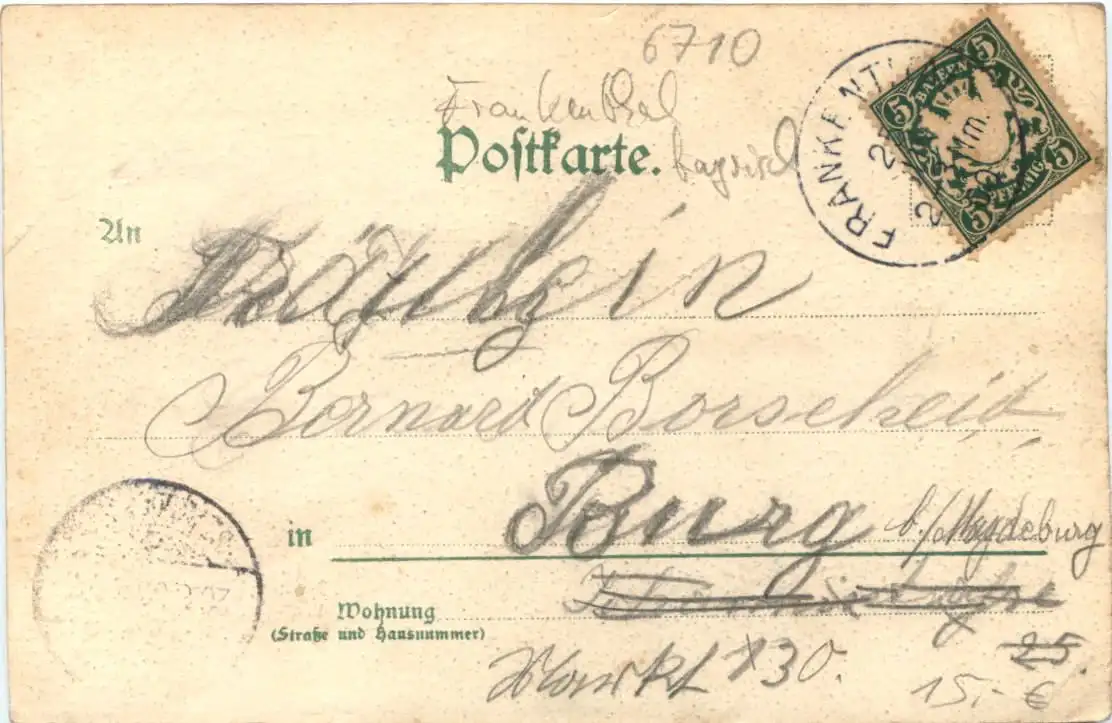 6710
Frankenthal
Postkarte. bayrisch
FRANKENTH
2
Mm.
5 BAYERN 5
5 PFENNIG 5
An
Fräulein
Bernard Borscheid,
in Burg b/Magdeburg
Wohnung
(Straße und Hausnummer)
Markt 30.
25.
15,- €